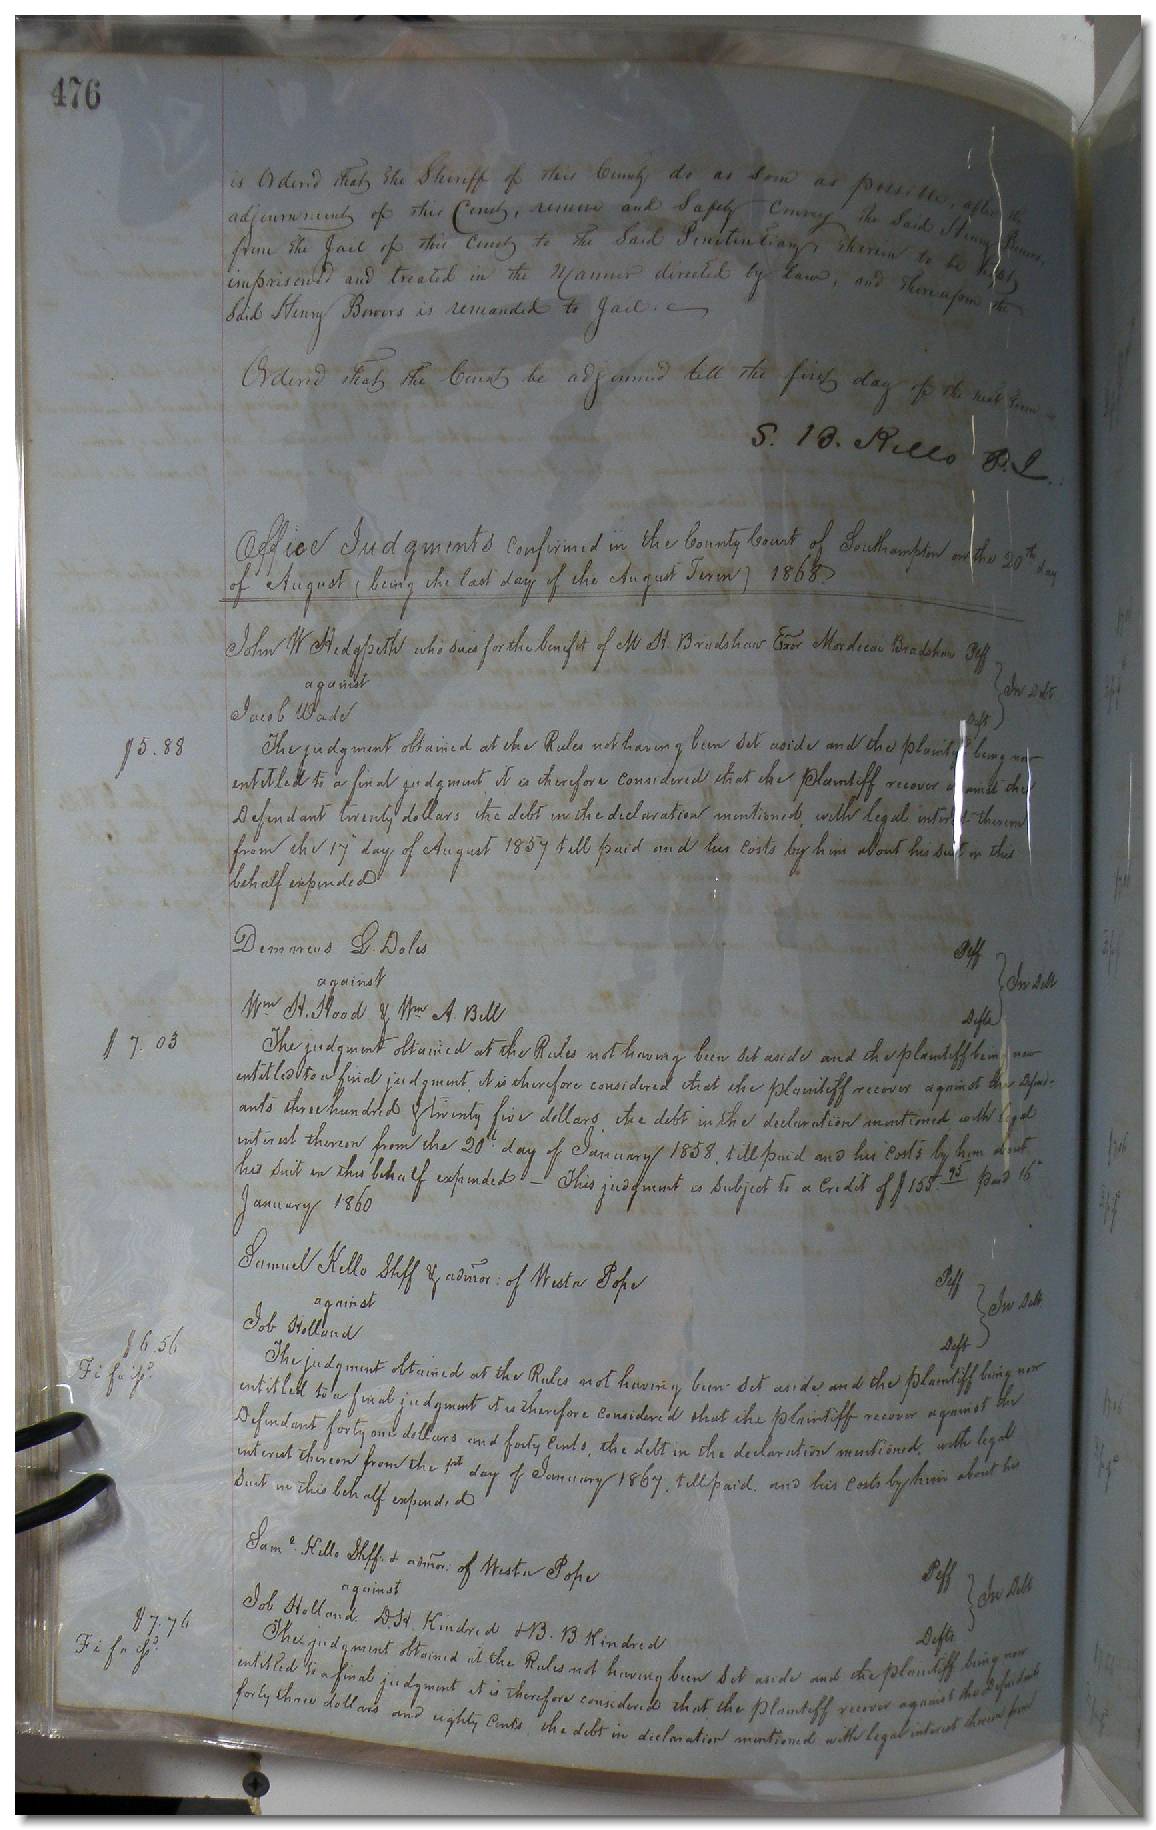 476
is Ordered that the Sheriff of this County do as soon as possible, after the
adjournment of this Court, remove and Safely Convey the Said Henry Bowers,
from the Jail of this Court to the Said Penitentiary, therein to be kept,
imprisoned and treated in the Manner directed by Law, and thereupon the
Said Henry Bowers is remanded to Jail.
Ordered that the Court be adjourned till the first day of the next Term
S. B. Kello P.J.
Office Judgments confirmed in the County Court of Southampton on the 20th day
of August (being the last day of the August Term) 1868
John W Hedgpeth who sues for the benefit of M H. Bradshaw Exor Mordecai Bradshaw Plff
against
In Debt
Jacob Wade Deft
$5.88
The judgment obtained at the Rules not having been set aside and the plaintiff being now
entitled to a final judgment it is therefore considered that the plaintiff recover against the
Defendant twenty dollars the debt in the declaration mentioned, with legal interest thereon
from the 17 day of August 1857 till paid and his costs by him about his suit in this
behalf expended
L. Doles Plff
against
In Debt
Wm H. Hood & Wm A. Bell Defts
$7.03
The judgment obtained at the Rules not having been set aside and the plaintiff being now
entitled to a final judgment, it is therefore considered that the plaintiff recover against the Defend-
ants three hundred & twenty five dollars, the debt in the declaration mentioned with legal
interest thereon from the 20th day of January 1858, till paid and his costs by him about
his suit in this behalf expended — This judgment is subject to a credit of $155.95 paid 16th
January 1860
Samuel Kello Shff & admor: of Weston Pope Plff
against
In Debt
Job Holland Deft
$6.56
Fi fa
The judgment obtained at the Rules not having been set aside and the plaintiff being now
entitled to a final judgment it is therefore considered that the plaintiff recover against the
Defendant forty one dollars and forty cents, the debt in the declaration mentioned, with legal
interest thereon from the 1st day of January 1867, till paid, and his costs by him about his
suit in this behalf expended
Saml. Kello Shff. & admor: of Weston Pope Plff
against
In Debt
Job Holland D.H. Kindred & B. B Kindred Defts
$7.76
Fi fa
The judgment obtained at the Rules not having been set aside and the plaintiff being now
entitled to a final judgment it is therefore considered that the plaintiff recover against the Defendants
forty three dollars and eighty cents the debt in declaration mentioned with legal interest thereon from